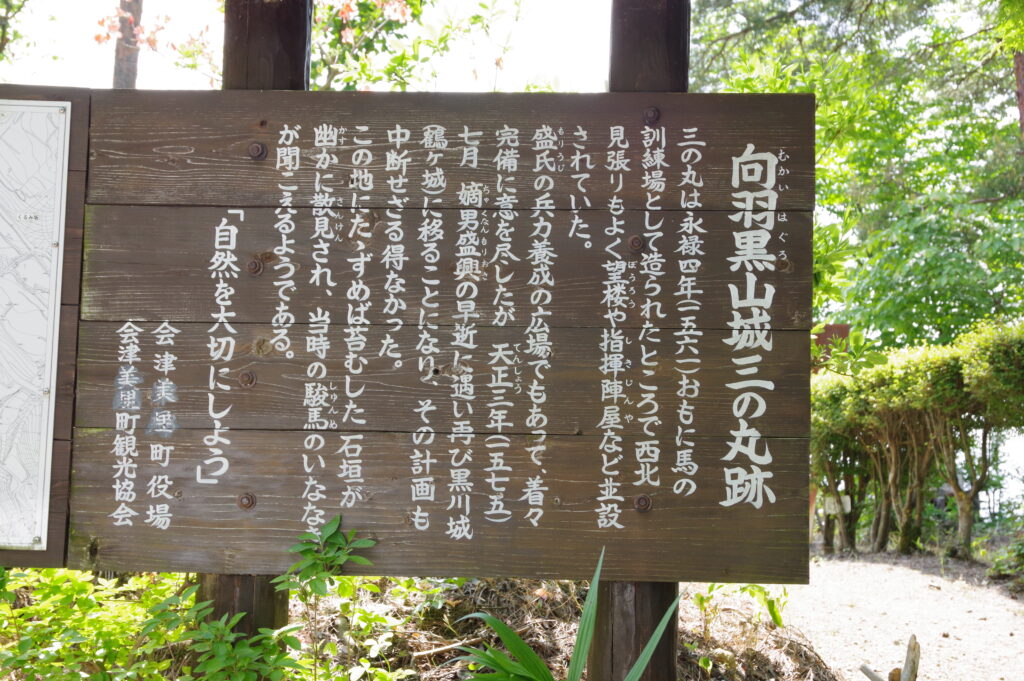 向羽黒山城三の丸跡
むかいはぐろ
三の丸は永禄四年(一五六一)おもに馬の
訓練場として造られたところで西北
見張りもよく望楼や指揮陣屋など並設
ぼうろう
じんや
されていた。
盛氏の兵力養成の広場でもあって、着々
もりうじ
完備に意を尽したが 天正三年(一五七五)
てんしょう
七月 嫡男盛興の早逝に遇い再び黒川城
ちゃくなんもりおき
(鶴ヶ城に移ることになり、その計画も
中断せざる得なかった。
この地にたゝずめば苔むした 石垣が
幽かに散見され、当時の駿馬のいななき
かす
さんけん
しゅんめ
が聞こえるようである。
「自然を大切にしよう」
会津美里町役場
会津美里町観光協会
くるみ坂